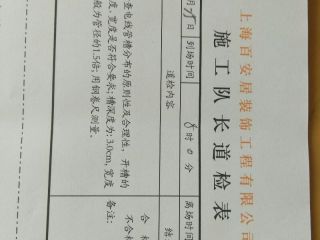 上海百安居装饰工程有限公司
施工队长道检表
到场时间 8时0分 离场时间
道检内容 结
查电线管槽分布的原则性及合理性，开槽的
度，宽度是否符合要求：槽深度为：3.0cm，宽度
般为管径的1.5倍；用钢卷尺测量。
合格
不合格
备注：